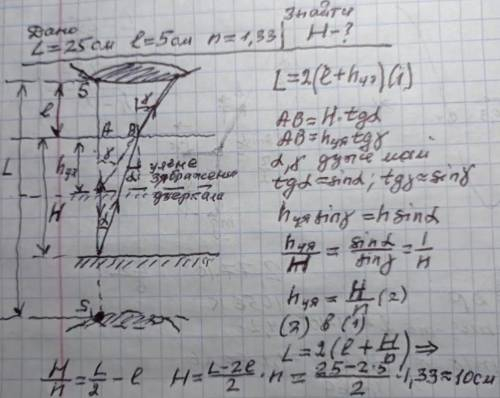 Дано
L = 25 см l = 5 см n = 1,33
Знайти
H - ?
S
l
A B
γ
γ
L
h уя
H
α
α
уявне
зображення
дзеркала
S
L = 2(l + h уя) (1)
AB = H·tgα
AB = h уя tgγ
α, γ дуже малі
tgα ≈ sinα; tgγ ≈ sinγ
h уя sinγ = h sinα
h уя / H = sinα / sinγ = 1 / n
h уя = H / n (2)
(2) в (1)
L = 2(l + H / n) ⇒
H / n = L / 2 - l H = (L - 2l) / 2 · n = (25 - 2·5) / 2 · 1,33 ≈ 10 см